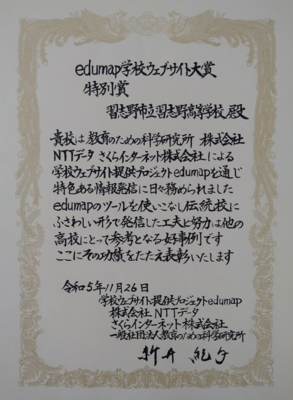 edumap学校ウェブサイト大賞
特別賞
習志野市立習志野高等学校 殿
貴校は教育のための科学研究所 株式会社
NTTデータ さくらインターネット株式会社による
学校ウェブサイト提供プロジェクトedumapを通じ
特色ある情報発信に日々務められました
edumapのツールを使いこなし伝統校に
ふさわしい形で発信した工夫と努力は他の
高校にとって参考となる好事例です
ここにその功績をたたえ表彰いたします
令和5年11月26日
学校ウェブサイト提供プロジェクトedumap
株式会社 NTTデータ
さくらインターネット 株式会社
一般社団法人教育のための科学研究所
新井 紀子